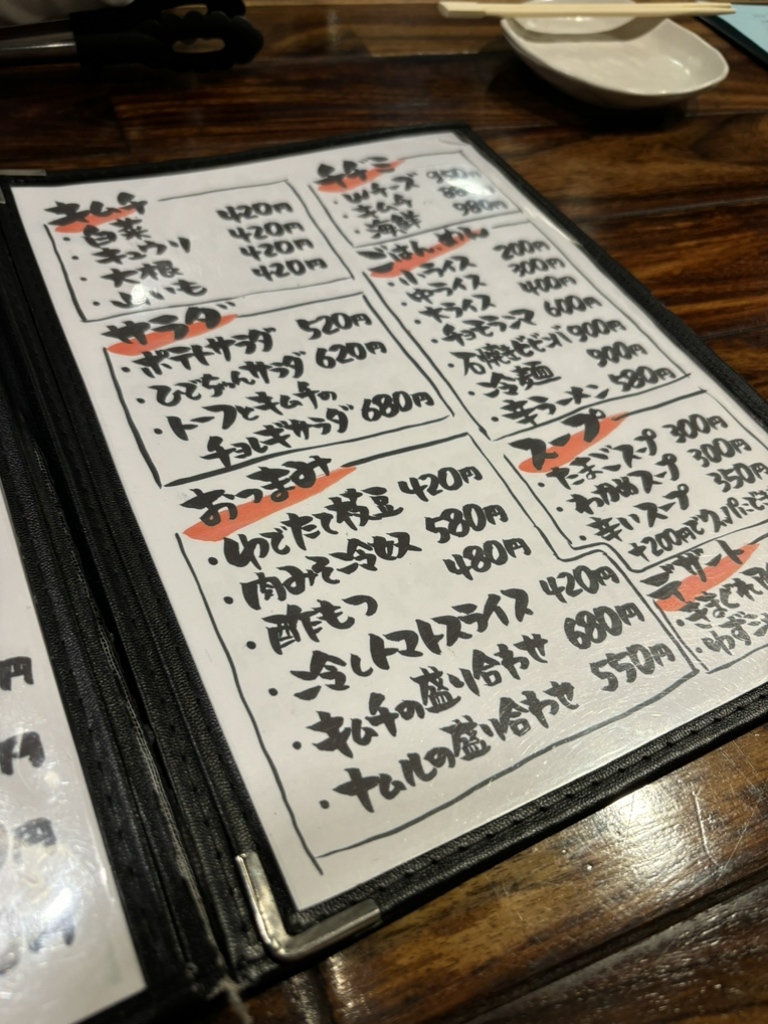 キムチ
・白菜 420円
・キュウリ 420円
・大根 420円
・山いも 420円
サラダ
・ポテトサラダ 520円
・ひでちゃんサラダ 620円
・トーフとキムチの
チョレギサラダ 680円
おつまみ
・ゆでたて枝豆 420円
・肉みそ冷奴 580円
・酢もつ 480円
・冷しトマトスライス 420円
・キムチの盛り合わせ 680円
・ナムルの盛り合わせ 550円
チヂミ
・Wチーズ
・キムチ
・海鮮 980円
ごはん・めん
・小ライス 200円
・中ライス 300円
・大ライス 400円
・チョモランマ 600円
・石焼きビビンバ 900円
・冷麺 900円
・辛ラーメン 580円
スープ
・たまごスープ 300円
・わかめスープ 300円
・辛いスープ 350円
+200円でクッパ
デザート
・きまぐれア
・ゆず
円
円
円
円